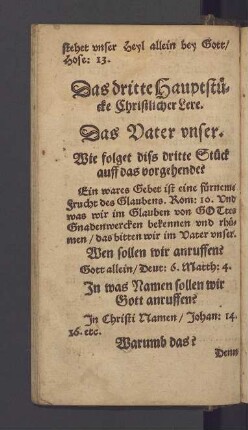 stehet vnser Heyl allein bey Gott/
Hose: 13.
Das dritte Hauptstü-
cke Christlicher Lere.
Das Vater vnser.
Wie folget diss dritte Stück
auff das vorgehende?
Ein wares Gebet ist eine fürneme
Frucht des Glaubens. Rom: 10. Vnd
was wir im Glauben von GOTtes
Gnadenwercken bekennen vnd rhü-
men / das bitten wir im Vater vnser.
Wen sollen wir anruffen?
Gott allein / Deut: 6. Matth: 4.
In was Namen sollen wir
Gott anruffen?
In Christi Namen / Johan: 14.
16. etc.
Warumb das?
Denn